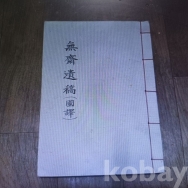 無齋遺稿(國譯)
kobay